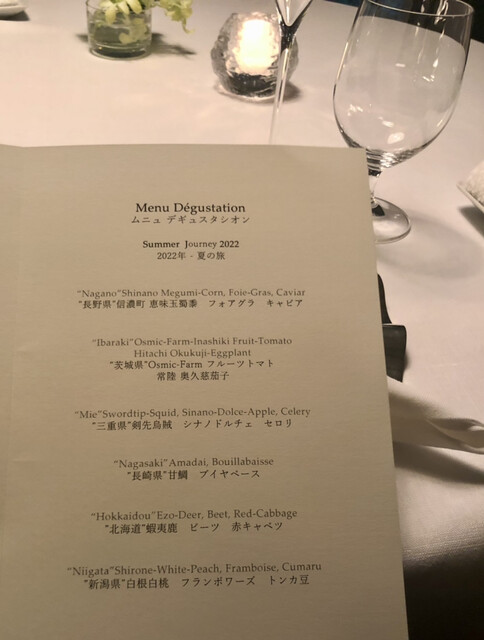 Menu Dégustation
ムニュ デギュスタシオン
Summer Journey 2022
2022年 - 夏の旅
“Nagano”Shinano Megumi-Corn, Foie-Gras, Caviar
”長野県”信濃町 恵味玉蜀黍 フォアグラ キャビア
“Ibaraki”Osmic-Farm-Inashiki Fruit-Tomato
Hitachi Okukuji-Eggplant
”茨城県”Osmic-Farm フルーツトマト
常陸 奥久慈茄子
“Mie”Swordtip-Squid, Sinano-Dolce-Apple, Celery
”三重県”剣先烏賊 シナノドルチェ セロリ
“Nagasaki”Amadai, Bouillabaisse
”長崎県”甘鯛 ブイヤベース
“Hokkaidou”Ezo-Deer, Beet, Red-Cabbage
”北海道”蝦夷鹿 ビーツ 赤キャベツ
“Niigata”Shirone-White-Peach, Framboise, Cumaru
”新潟県”白根白桃 フランボワーズ トンカ豆